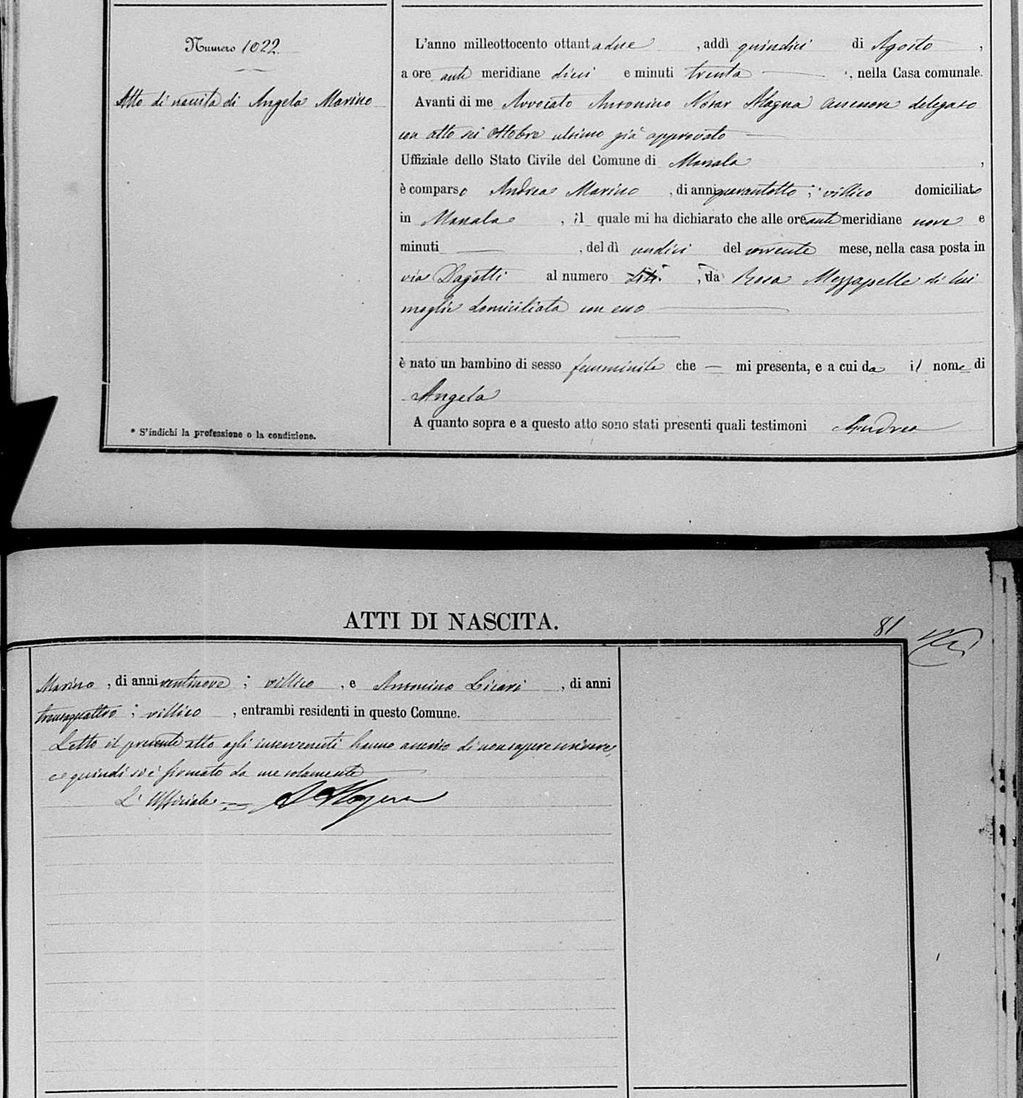 Numero 1022
Atto di nascita di Angela Marino
* S'indichi la professione o la condizione.
L'anno milleottocento ottantadue, addì quindici di Agosto,
a ore anti meridiane dieci e minuti trenta, nella Casa comunale.
Avanti di me Avvocato Antonino Magna Assessore delegato
con atto sei Ottobre ultimo già approvato
Uffiziale dello Stato Civile del Comune di Marsala,
è comparso Andrea Marino, di anni quarantotto; villico domiciliato
in Marsala, il quale mi ha dichiarato che alle ore anti meridiane nove e
minuti, del dì undici del corrente mese, nella casa posta in
via Dagotti al numero, da Rosa Mezzapelle di lui
moglie domiciliata con esso
è nato un bambino di sesso femminile che — mi presenta, e a cui da il nome di
Angela
A quanto sopra e a questo atto sono stati presenti quali testimoni Andrea
ATTI DI NASCITA.
81
Marino, di anni ventinove; villico, e Antonino Licari, di anni
trentaquattro; villico, entrambi residenti in questo Comune.
Letto il presente atto agli intervenuti hanno asserito di non sapere scrivere,
e quindi si è firmato da me solamente
L'Uffiziale